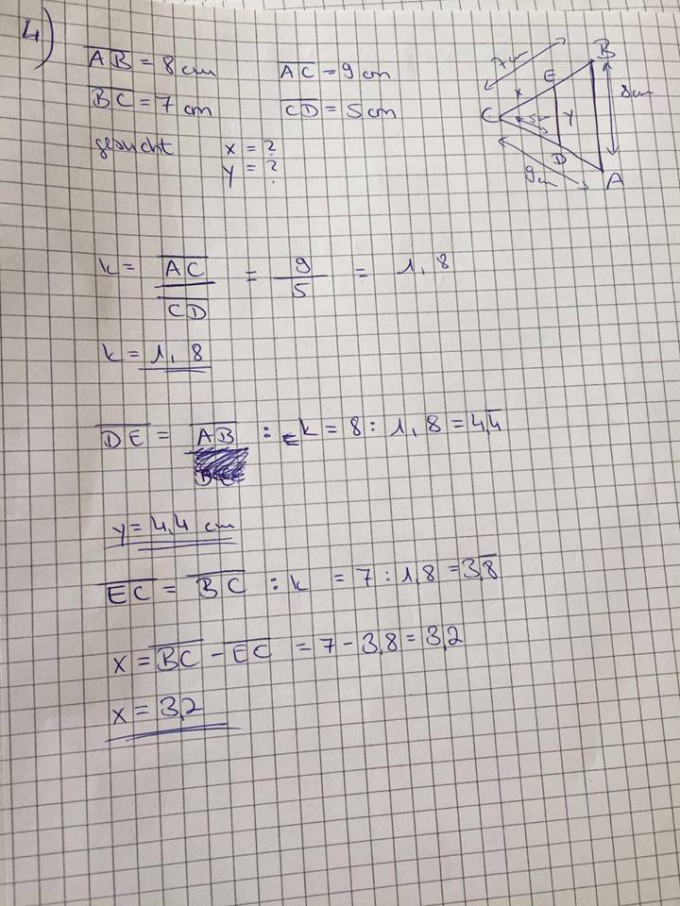 4)
AB = 8 cm AC = 9 cm
BC = 7 cm CD = 5 cm
gesucht x = ?
y = ?
B
E
x
C
5
y
8cm
D
9cm
A
k = AC / CD = 9 / 5 = 1,8
k = 1,8
DE = AB : k = 8 : 1,8 = 4,4
y = 4,4 cm
EC = BC : k = 7 : 1,8 = 3,8
x = BC - EC = 7 - 3,8 = 3,2
x = 3,2